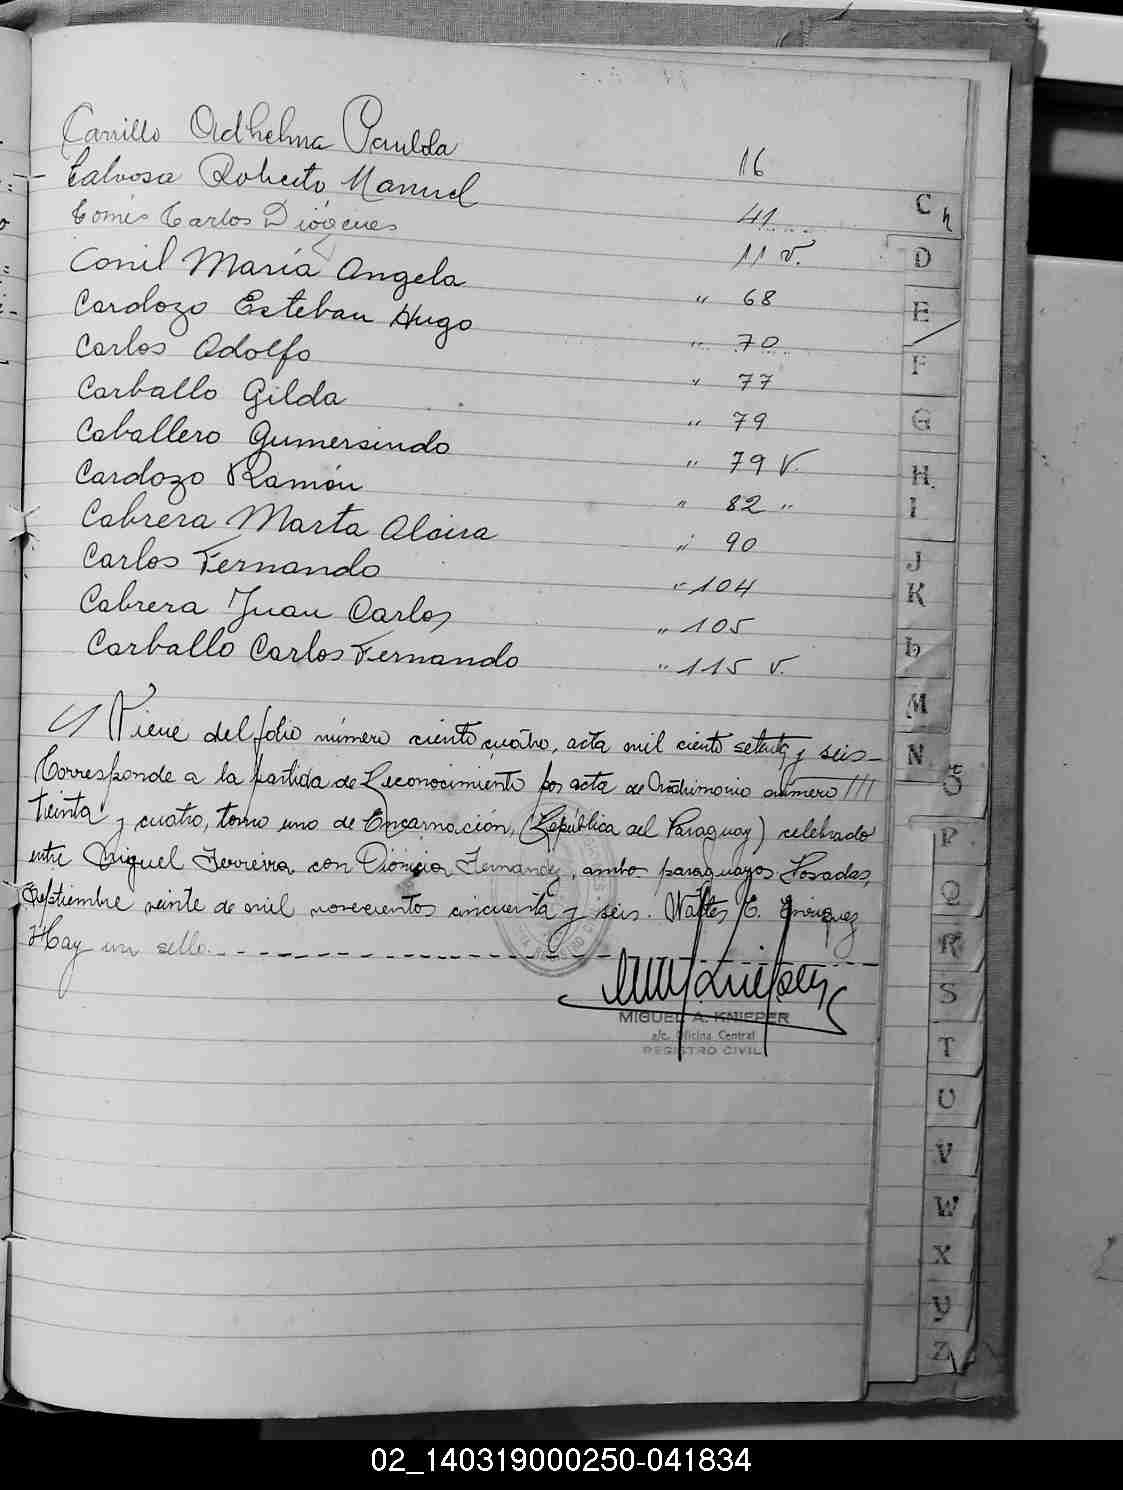 Carrillo Adhelma Paulda 16
Calvosa Roberto Manuel 41
Comis Carlos Diógenes 11 v.
Conil María Angela " 68
Cardozo Esteban Hugo " 70
Carlos Adolfo " 77
Carballo Gilda " 79
Caballero Gumersindo " 79 v.
Cardozo Ramón " 82 "
Cabrera Marta Alcira " 90
Carlos Fernando " 104
Cabrera Juan Carlos " 105
Carballo Carlos Fernando " 115 v.
Viene del folio número ciento cuatro, acta mil ciento setenta y seis-
Corresponde a la partida de Reconocimiento por acta de Matrimonio número ///
treinta y cuatro, tomo uno de Encarnación, (República del Paraguay) celebrado
entre Miguel Ferreira con Dionicia Fernandez, ambos paraguayos Posadas,
Septiembre veinte de mil novecientos cincuenta y seis. Walter E. Enriquez
Hay un sello.
MIGUEL A. KNIEPER
a/c. Oficina Central
REGISTRO CIVIL
Ch
D
E
F
G
H
I
J
K
L
M
N
O
P
Q
R
S
T
U
V
W
X
Y
Z
02_140319000250-041834